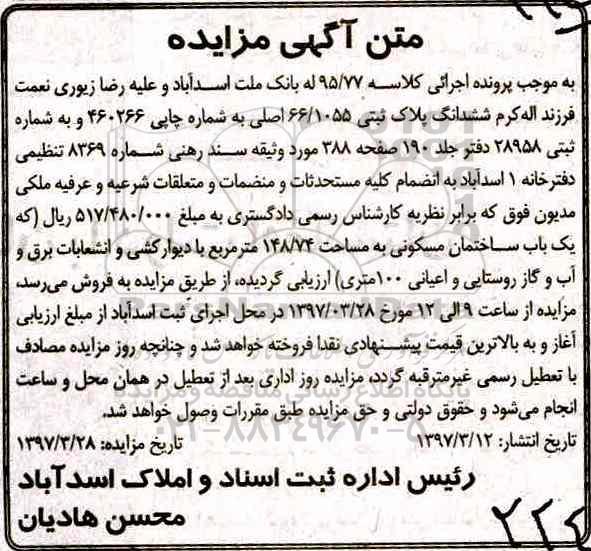 متن آگهی مزایده
به موجب پرونده اجرائی کلاسه ۹۵/۷۷ له بانک ملت اسدآباد و علیه رضا زیوری نعمت
فرزند اله‌کرم ششدانگ پلاک ثبتی ۶۶/۱۰۵۵ اصلی به شماره چاپی ۴۶۰۲۶۶ و به شماره
ثبتی ۲۸۹۵۸ دفتر جلد ۱۹۰ صفحه ۳۸۸ مورد وثیقه سند رهنی شماره ۸۳۶۹ تنظیمی
دفترخانه ۱ اسدآباد به انضمام کلیه مستحدثات و منضمات و متعلقات شرعیه و عرفیه ملکی
مدیون فوق که برابر نظریه کارشناس رسمی دادگستری به مبلغ ۵۱۷/۴۸۰/۰۰۰ ریال (که
یک باب ساختمان مسکونی به مساحت ۱۴۸/۷۴ مترمربع با دیوارکشی و انشعابات برق و
آب و گاز روستایی و اعیانی ۱۰۰متری) ارزیابی گردیده، از طریق مزایده به فروش می‌رسد،
مزایده از ساعت ۹ الی ۱۲ مورخ ۱۳۹۷/۰۳/۲۸ در محل اجرای ثبت اسدآباد از مبلغ ارزیابی
آغاز و به بالاترین قیمت پیشنهادی نقدا فروخته خواهد شد و چنانچه روز مزایده مصادف
با تعطیل رسمی غیرمترقبه گردد، مزایده روز اداری بعد از تعطیل در همان محل و ساعت
انجام می‌شود و حقوق دولتی و حق مزایده طبق مقررات وصول خواهد شد.
تاریخ انتشار: ۱۳۹۷/۳/۱۲ تاریخ مزایده: ۱۳۹۷/۳/۲۸
رئیس اداره ثبت اسناد و املاک اسدآباد
محسن هادیان
ParsNamadData
پایگاه اطلاع رسانی مناقصه و مزایده
۰۲۱-۸۸۳۴۹۶۷۰-۵